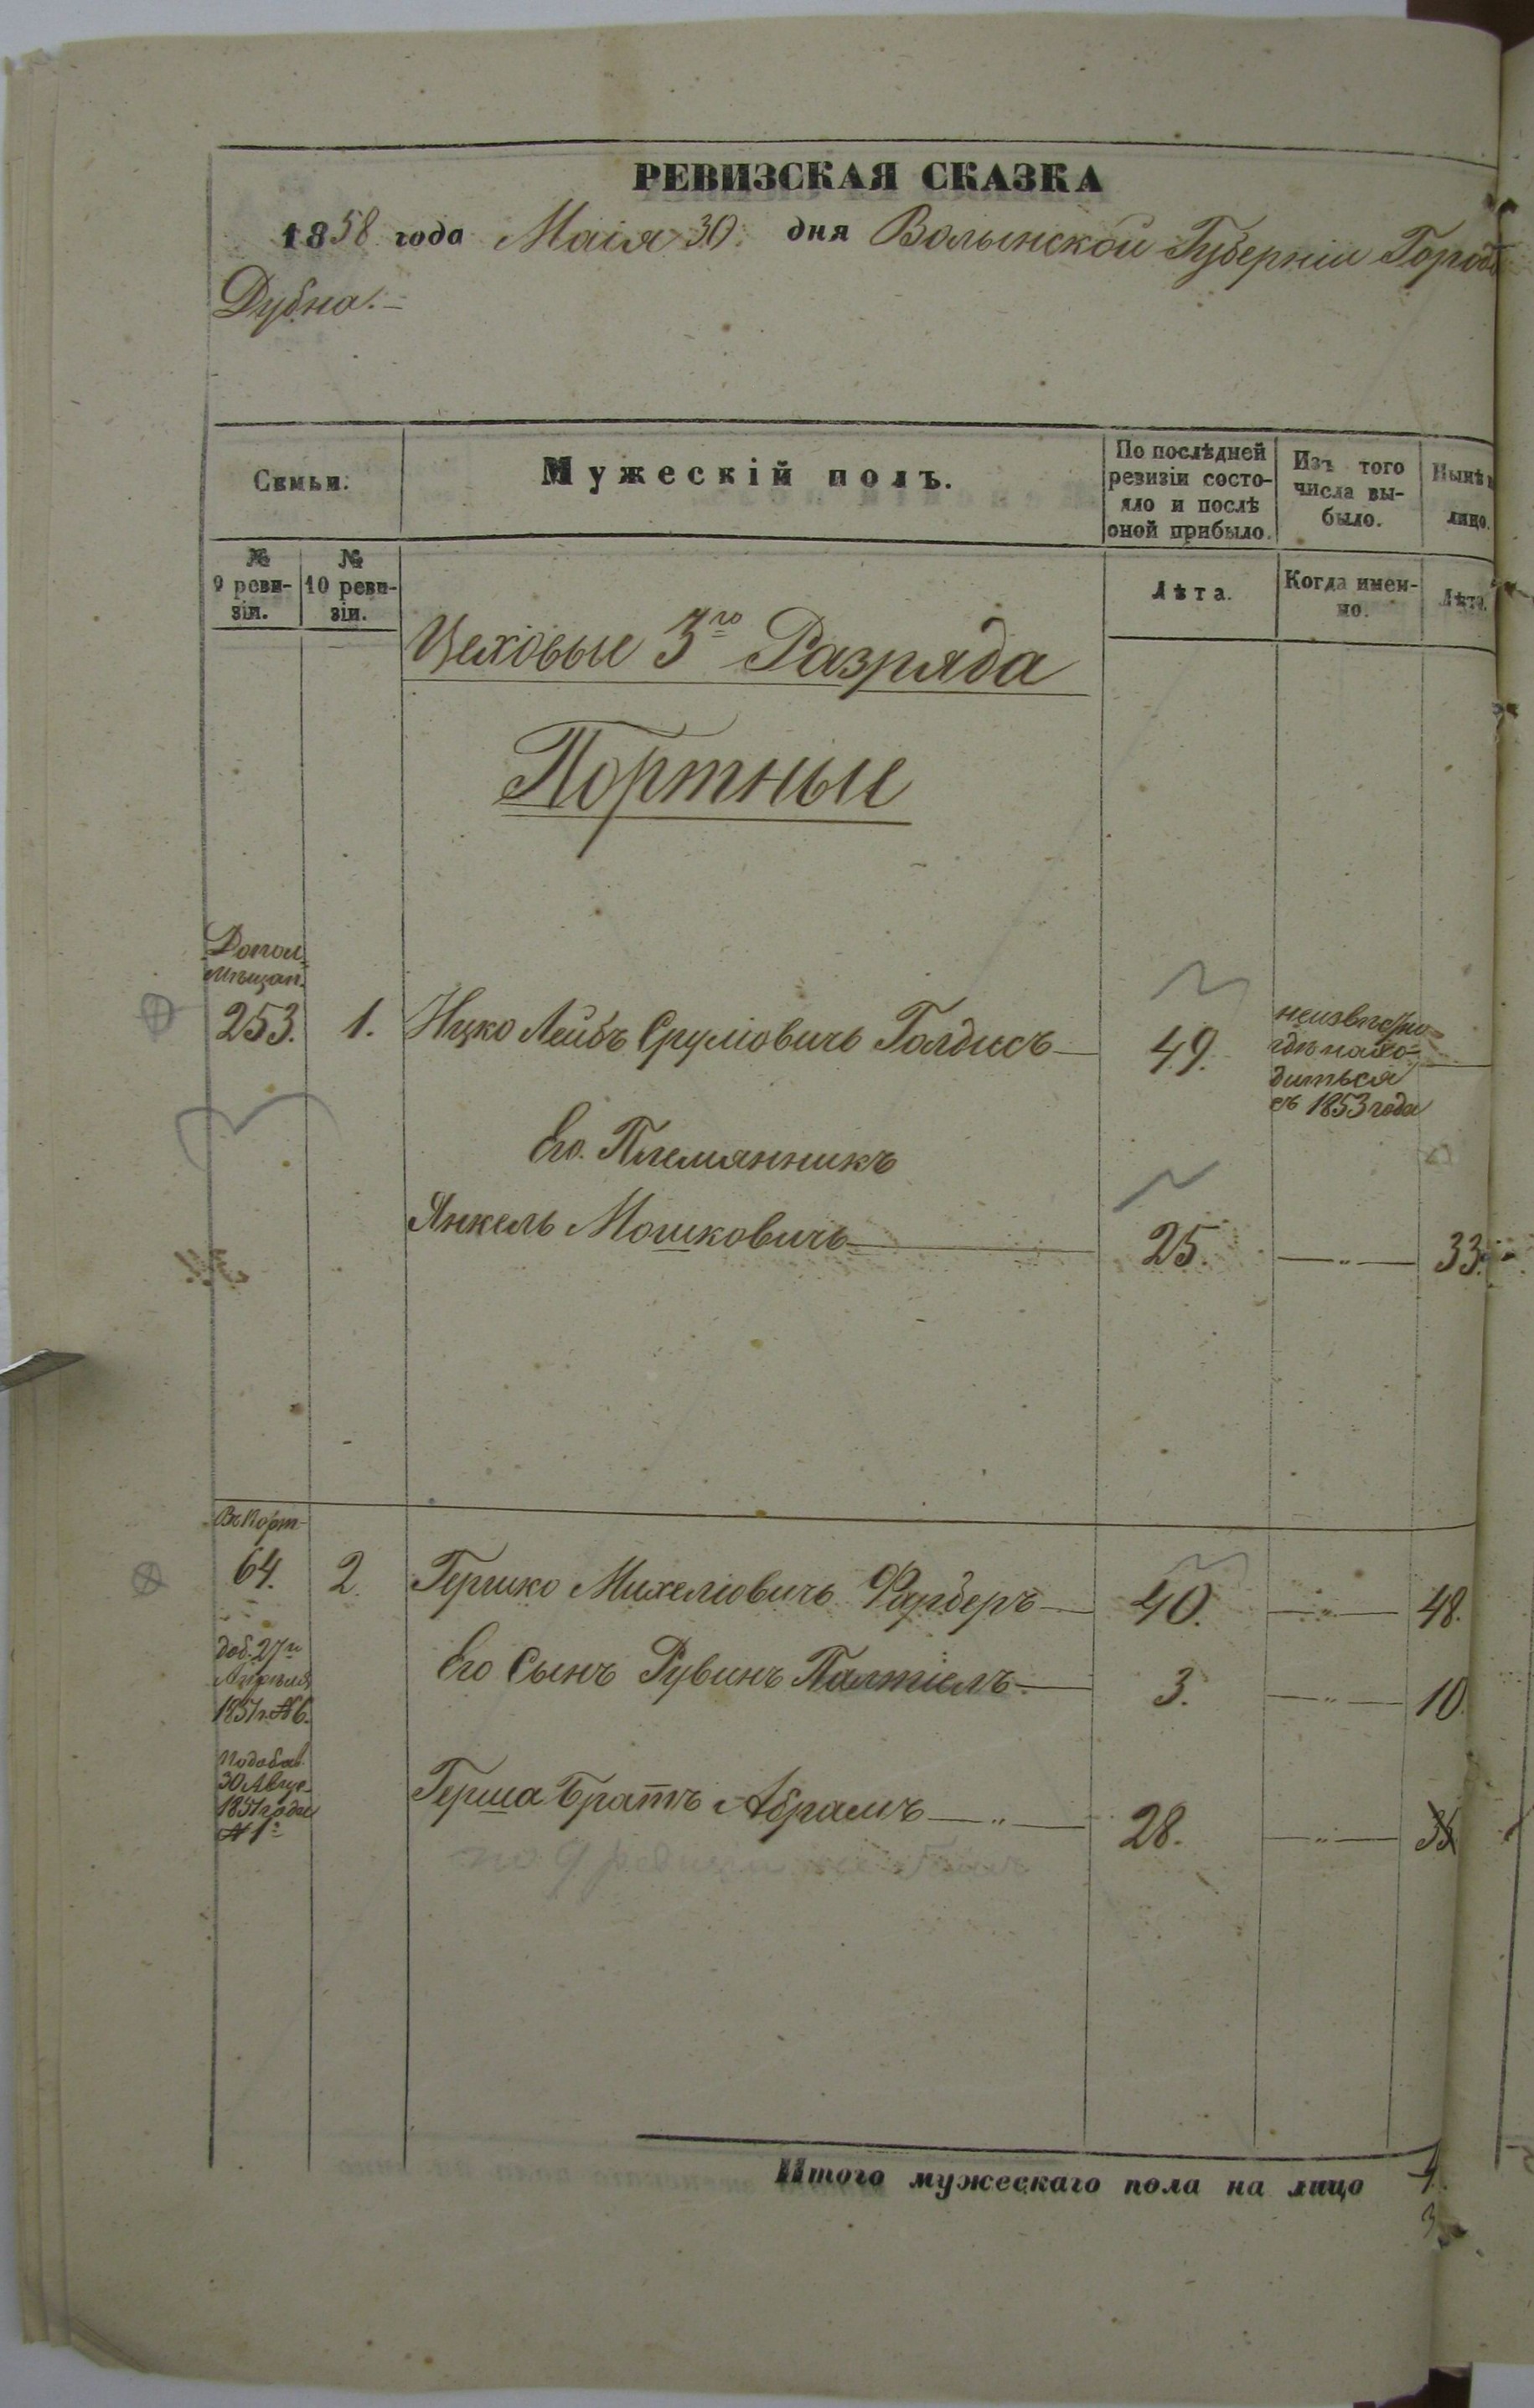 РЕВИЗСКАЯ СКАЗКА
1858 года Маія 30. дня Волынской Губерніи Города
Дубна.
Семьи.
Мужескій полъ.
По послѣдней
ревизіи состо-
яло и послѣ
оной прибыло.
Изъ того
числа вы-
было.
Нынѣ на
лицо.
№
9 реви-
зіи.
№
10 реви-
зіи.
Лѣта.
Когда имен-
но.
Лѣта.
Цеховые 3го Разряда
Портные
Допол.
мѣщан.
253. 1. Ицко Лейбъ Сруліовичъ Голдисъ 49.
неизвѣстно
гдѣ нахо-
диться
съ 1853 года
Его. Племянникъ
Янкель Мошковичъ 25. —„— 33.
Въ Порт.
64. 2. Гершко Михеліовичъ Фарберъ 40. —„— 48.
доб. 27го
Апрѣля
1851 г. №6.
Его Сынъ Рувинъ Палтіелъ 3. —„— 10.
подобав.
30 Авгус.
1851 года
№ 1й
Герша Братъ Абрамъ —„— 28. —„— 35
по 9 ревизіи не былъ
Итого мужескаго пола на лицо 4.
3